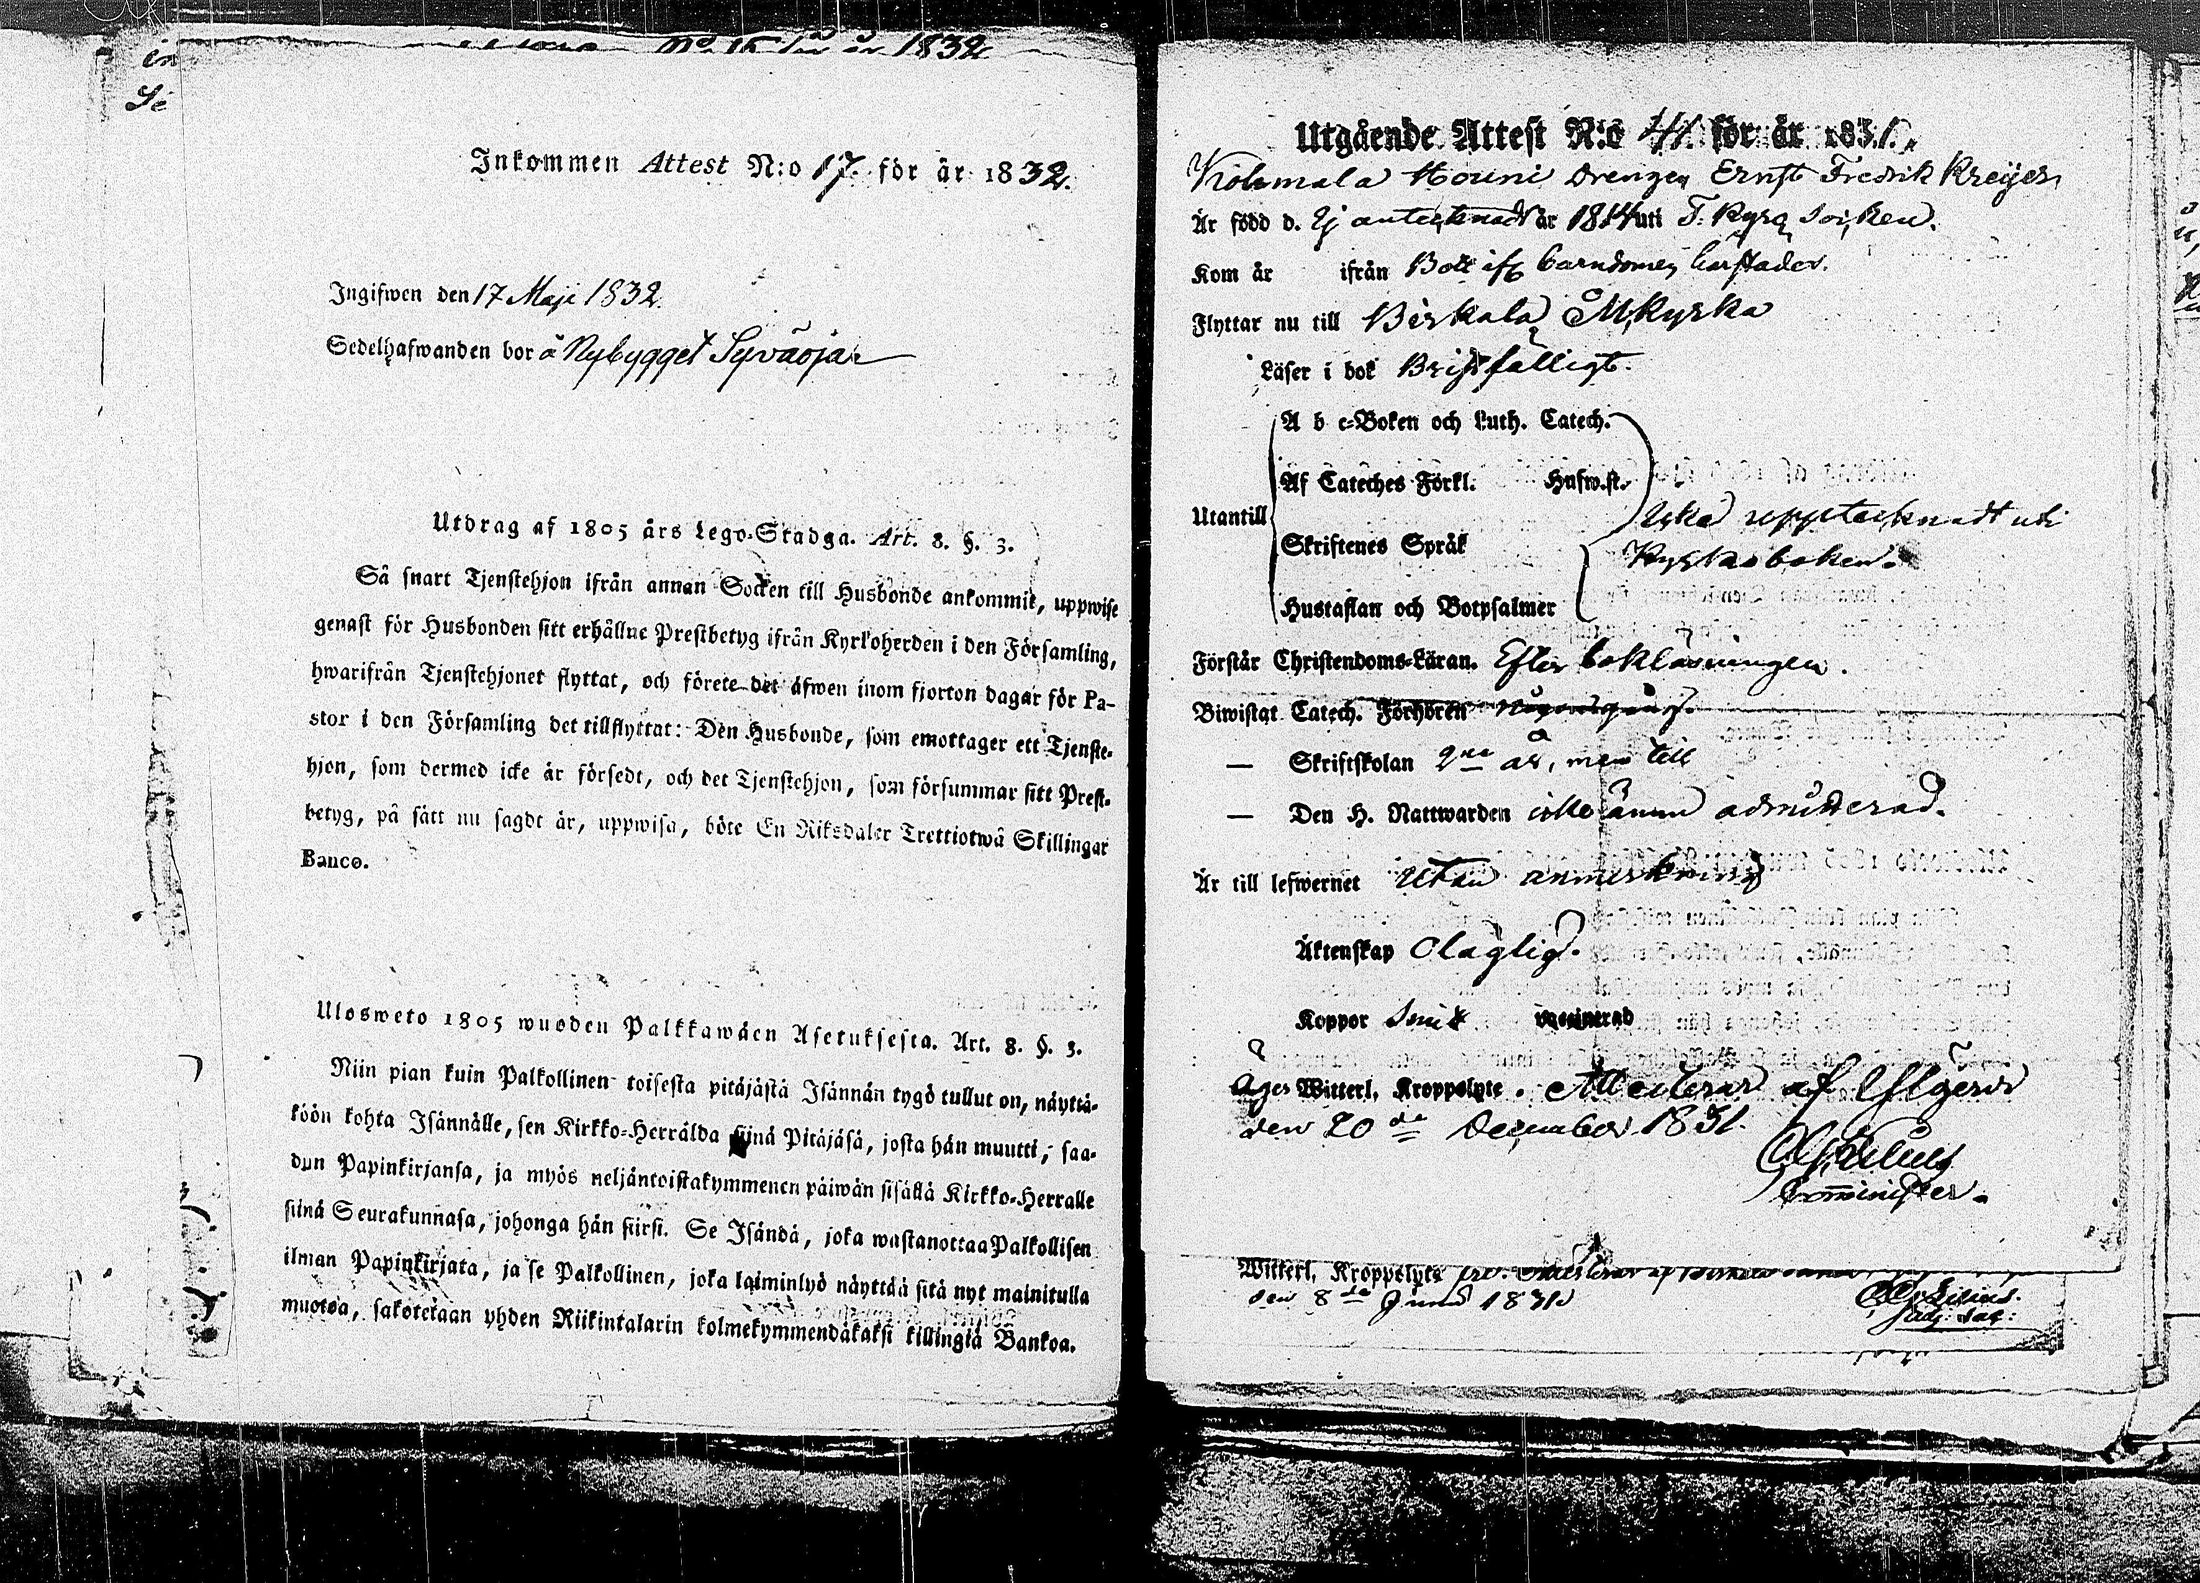 No 16 för år 1832
in
Se
Inkommen Attest N:o 17. för år 1832.
Ingifwen den 17 Maji 1832.
Sedelhafwanden bor å Nybygget Syväoja
Utdrag af 1805 års Lego-Stadga. Art. 8. §. 3.
Så snart Tjenstehjon ifrån annan Socken till Husbonde ankommit, uppwise
genast för Husbonden sitt erhållne Prestbetyg ifrån Kyrkoherden i den Församling,
hwarifrån Tjenstehjonet flyttat, och förete det äfwen inom fjorton dagar för Pa-
stor i den Församling det tillflyttat: Den Husbonde, som emottager ett Tjenste-
hjon, som dermed icke är försedt, och det Tjenstehjon, som försummar sitt Prest-
betyg, på sätt nu sagdt är, uppwisa, böte En Riksdaler Trettiotwå Skillingar
Banco.
Ulosweto 1805 wuoden Palkkawäen Asetuksesta. Art. 8. §. 3.
Niin pian kuin Palkollinen toisesta pitäjästä Isännän tygö tullut on, näyttä-
köön kohta Isännälle, sen Kirkko-Herrälda siinä Pitäjäsä, josta hän muutti, saa-
dun Papinkirjansa, ja myös neljäntoistakymmenen päiwän sisällä Kirkko-Herralle
siinä Seurakunnasa, johonga hän siirsi. Se Isändä, joka wastanottaa Palkollisen
ilman Papinkirjata, ja se Palkollinen, joka laiminlyö näyttää sitä nyt mainitulla
muotoa, sakotetaan yhden Riikintalarin kolmekymmendäkaksi killingiä Bankoa.
Utgående Attest N:o 41. för år 1831.
Kolmala Mouni Drengen Ernst Fredrik Kreijer,
Är född d. Ej antecknadt år 1814 uti T. Kyro Socken.
Kom år ifrån Bott ifr barndomen härstädes.
Flyttar nu till Birkala M.kyrka
Läser i bok Bristfälligt.
A b c-Boken och Luth. Catech.
Af Cateches Förkl. Hufw.st.
Utantill
Icke upptecknadt uti
Skriftenes Språk
Kyrkoboken.
Hustaflan och Botpsalmer
Förstår Christendoms-Läran. Efter bokläsningen.
Biwistat Catech. Förhören
— Skriftskolan år, men till
— Den H. Nattwarden icke ännu admitterad.
Är till lefwernet Utan anmerkning
Äktenskap Olaglig.
Koppor vaccinerad
Äger Witterl. Kroppslyte. Attesterar af
den 20de December 1831.
Comminister.
Witterl. Kroppslyte
den 8de Junii 1831